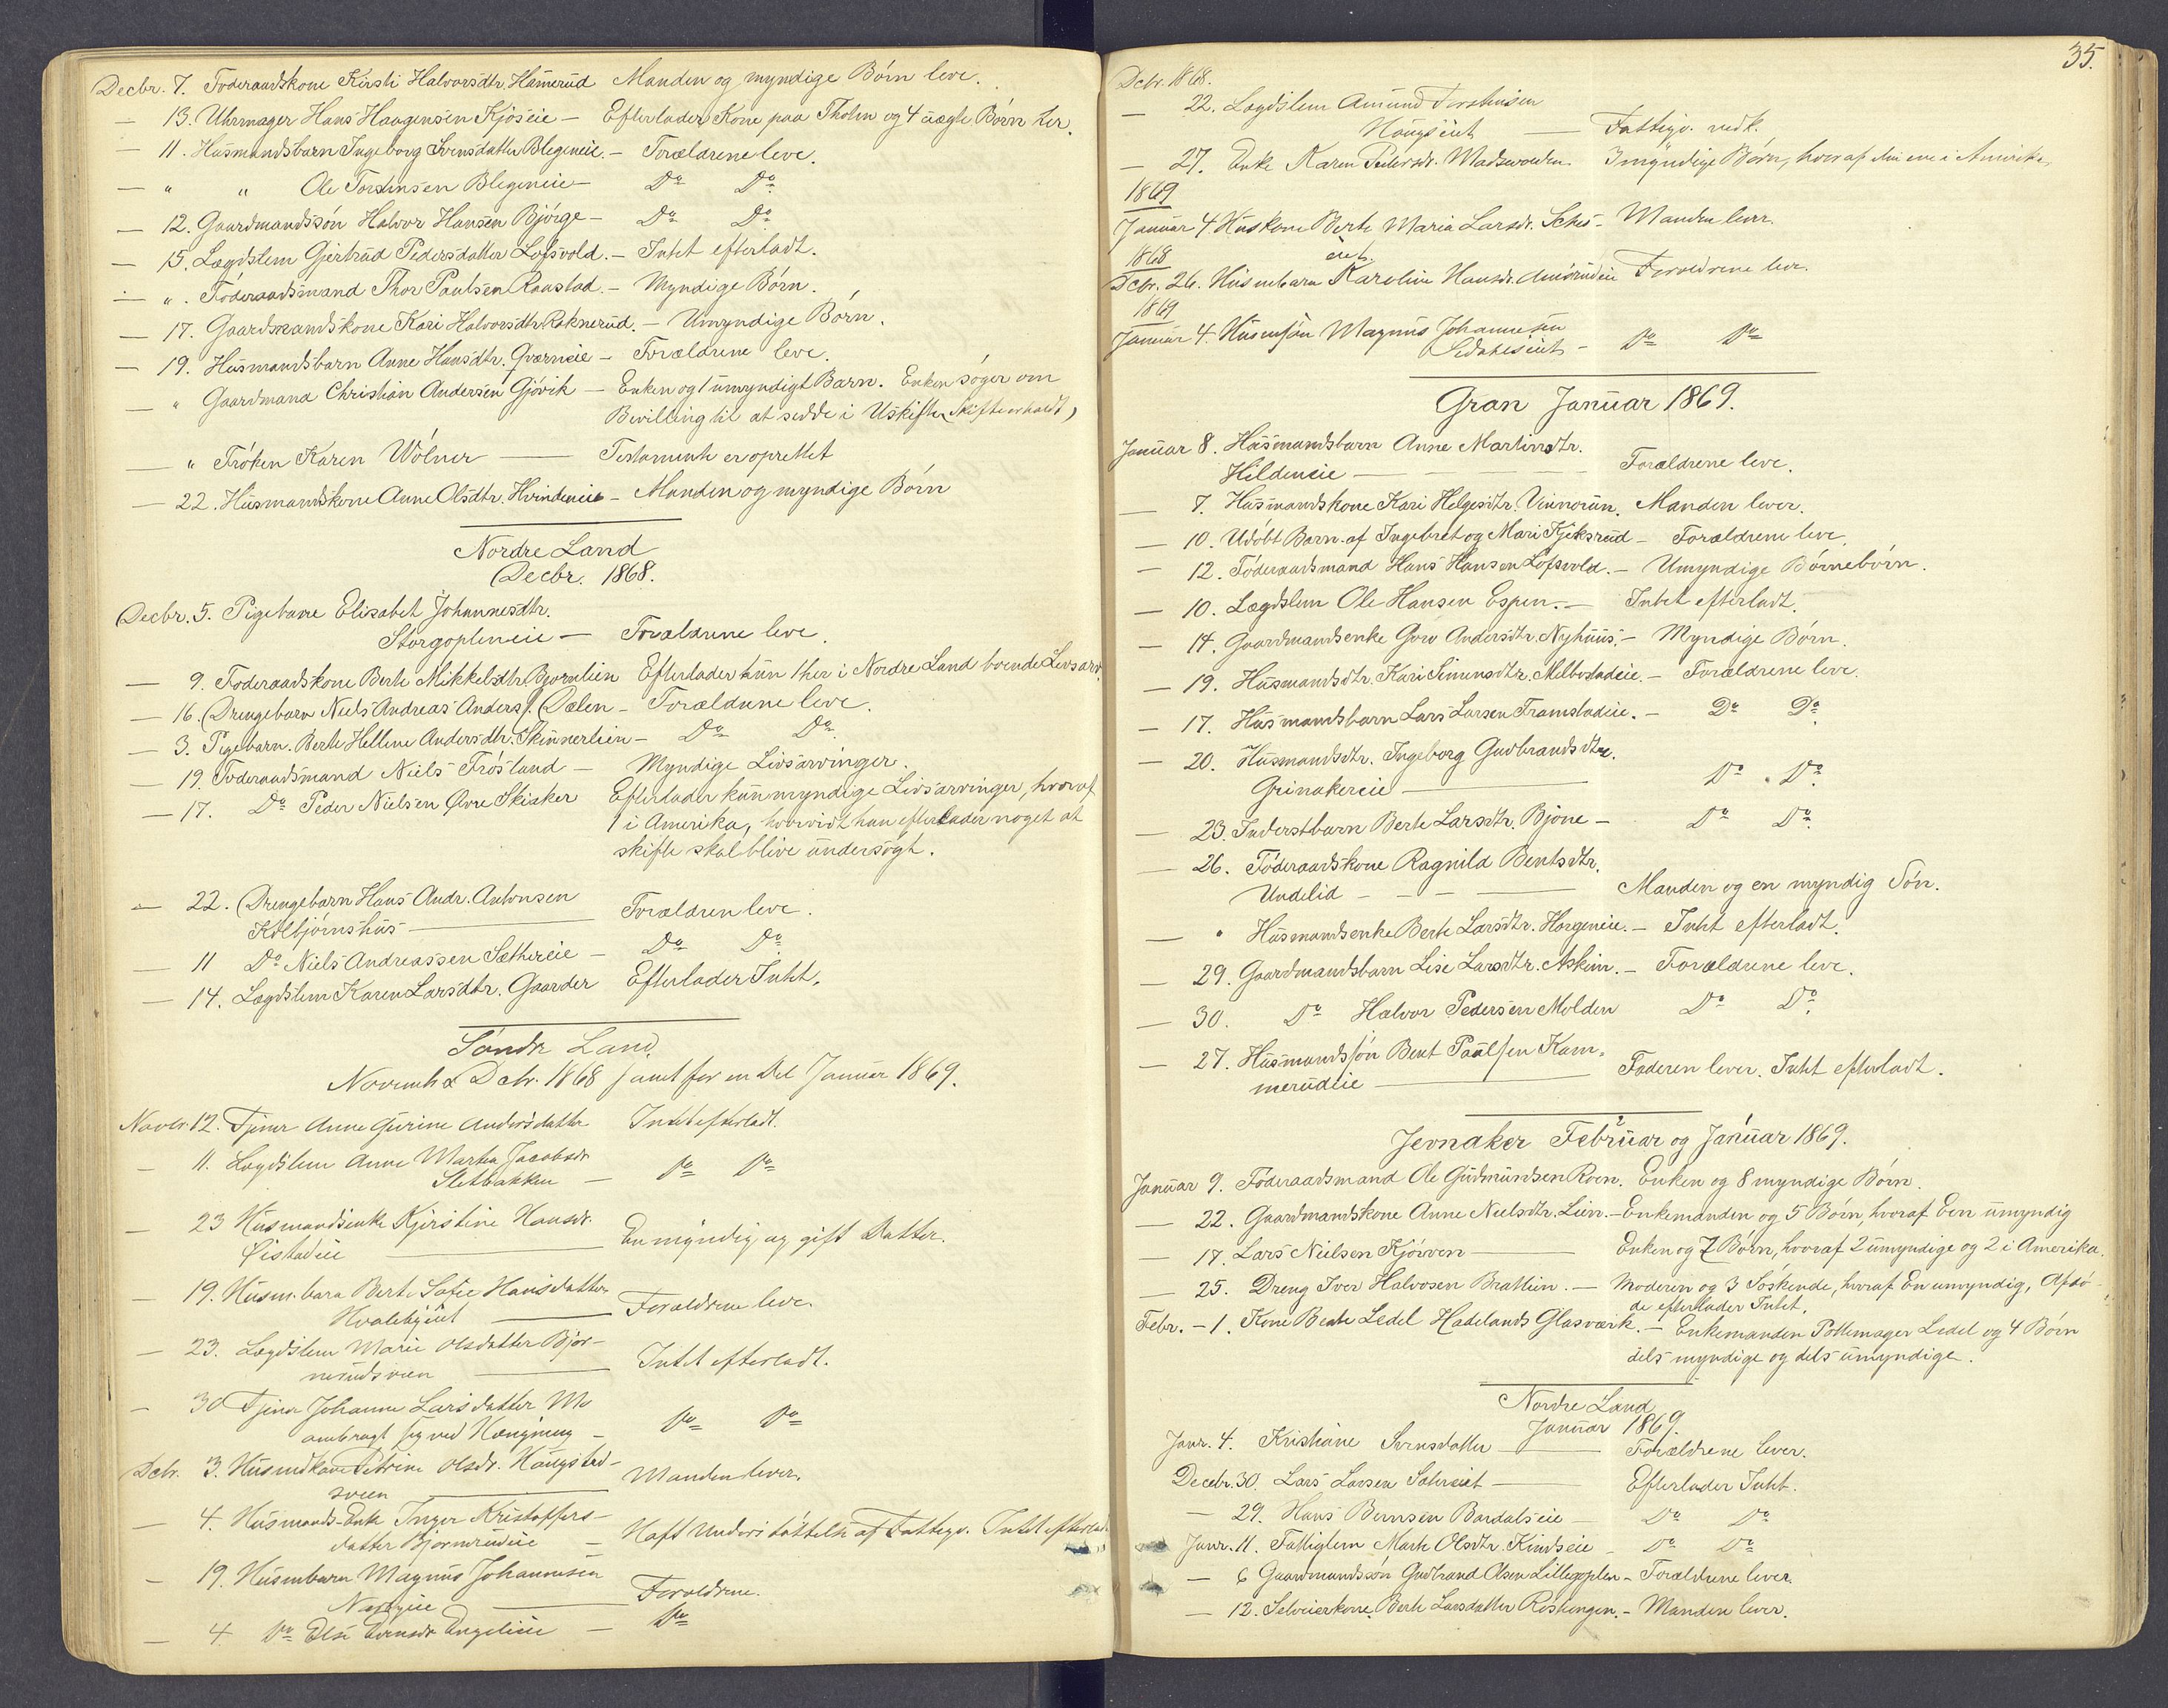 Decbr. 7. Föderaadskone Kirsti Halvorsdtr. Hamerud Manden og myndige Börn leve.
— 13. Uhrmager Hans Haagensen Kjoseie — Efterlader Kone paa Thoten og 4 uægte Börn her.
— 11. Husmandsbarn Ingeborg Svensdatter Blegeneie. — Forældrene leve.
— " " Ole Torstensen Blegeneie — Do Do
— 12. Gaardmandssön Halvor Hansen Bjórge — Do Do
— 15. Lægdslem Gjertrud Pedersdatter Lofsvold. — Intet efterladt.
— ". Föderaadsmand Thor Paulsen Raastad. — Myndige Börn.
— 17. Gaardmandskone Kari Halvorsdtr. Raknerud. — Umyndige Börn.
— 19. Husmandsbarn Anne Hansdtr. Qværneie — Forældrene leve.
— " Gaardmand Christian Andersen Gjövik — Enken og 1 umyndigt Barn. Enken söger om
Bevilling til at sidde i Uskiftet (Skifte erholdt)
— " Fröken Karen Wölner — Testamente er oprettet
— 22. Husmandskone Anne Olsdtr. Hvindeneie — Manden og myndige Börn
Nordre Land
Decbr. 1868.
Decbr. 5. Pigebarn Elisabet Johannesdtr.
Storgopleneie — Forældrene leve.
— 9. Föderaadskone Berte Mikkelsdtr. Bjornlien Efterlader kun 1 her i Nordre Land boende Livsarv.
— 16. Drengebarn Niels Andreas Anders. Dælen — Forældrene leve.
— 3. Pigebarn. Berte Hellene Andersdtr. Skinnerlien — Do Do
— 19. Föderaadsmand Niels Frösland — Myndige Livsarvinger.
— 17. Do Peder Nielsen Övre Skiaker Efterlader kun myndige Livsarvinger, hvoraf
1 i Amerika, hvorvidt han efterlader noget at
skifte skal blive undersögt.
— 22. Drengebarn Hans Andr. Antonsen
Kolbjörnshus — Forældren leve.
— 11 Do Niels Andreassen Sæthereie — Do Do
— 14. Lægdslem Karen Larsdtr. Gaarder Efterlader Intet.
Söndre Land.
November & Dcbr. 1868 samt for en Del Januar 1869.
Novbr. 12. Tjener Anne Gurine Andersdatter Intet efterladt.
— 11. Lægdslem Anne Marthea Jacobsdr
Sletbakken — Do Do
— 23 Husmandsenke Kjerstine Hansdr.
Öistadeie — En myndig og gift Datter.
— 19. Husm. barn Berte Sofie Hansdatter
Hvalebyeiet — Forældrene leve.
— 23. Lægdslem Marie Olsdatter Bjor-
nerudsveen — Intet efterladt.
— 30 Tjener Johanne Larsdatter
ombragt sig ved Hængning — Do Do
Dcbr. 3. Husmdkone Petrine Olsdr. Haugstad-
sveen — Manden lever.
— 4. Husmands-Enke Inger Kristoffers-
datter Bjornerudeie — Haft Understöttelse af Fattigv. Intet efterladt
— 19. Husmbarn Magnus Johannesen
— Forældrene.
— 4 Do Else Evensdr Engelieie — Do
35.
Dcbr. 1868.
— 22. Lægdslem Amund Torstensen
Haugseiet — Fattigv. vedk.
— 27. Enke Karen Pedersdr. Madsvolden. 3 myndige Börn, hvoraf den ene i Amerika.
1869
Januar 4. Huskone Berte Maria Larsdr. — Manden lever.
eiet.
1868
Dcbr. 26. Husmbarn Karoline Hansdr. Amörudeie Forældrene leve.
1869
Januar 4. Husmsön Magnus Johannesen
— Do Do
Gran Januar 1869.
Januar 8. Husmandsbarn Anne Martinsdtr.
Hildeneie — Forældrene leve.
— 7. Husmandskone Kari Helgesdtr. Vinnorun. Manden lever.
— 10. Udöbt Barn af Ingebret og Mari Kjeksrud — Forældrene leve.
— 12. Föderaadsmand Hans Hansen Lofsvold. — Umyndige Börnebörn.
— 10. Lægdslem Ole Hansen Espen. — Intet efterladt.
— 14. Gaardmandsenke Goro Andersdtr. Nyhuus. — Myndige Börn.
— 19. Husmandsdtr. Kari Simensdtr. Melbostadeie. — Forældrene leve.
— 17. Husmandsbarn Lars Larsen Framstadeie. — Do Do
— 20. Husmandsdtr. Ingeborg Gudbrandsdtr.
Grinakereie — Do Do
— 23. Inderstbarn Berte Larsdtr. Bjone — Do Do
— 26. Föderaadskone Ragnild Bentsdtr.
Undelid — Manden og en myndig Sön.
— " Husmandsenke Berte Larsdtr. Horgeneie. — Intet efterladt.
— 29. Gaardmandsbarn Lise Larsdtr. Askim. — Forældrene leve.
— 30. Do Halvor Pedersen Molden Do Do
— 27. Husmandssön Bent Paulsen Kam-
merudeie — Faderen lever. Intet efterladt.
Jevnaker Februar og Januar 1869.
Januar 9. Föderaadsmand Ole Gudmundsen Roen. Enken og 8 myndige Börn.
— 22. Gaardmandskone Anne Nielsdtr. Lien. — Enkemanden og 5 Börn, hvoraf Een umyndig
— 17. Lars Nielsen Kjörven — Enken og 7 Börn, hvoraf 2 umyndige og 2 i Amerika.
— 25. Dreng Iver Halvosen Bratlien. — Moderen og 3 Söskende, hvoraf En umyndig, Afdö-
de efterlader Intet.
Febr. — 1. Kone Beate Ledel Hadelands Glasværk. — Enkemanden Pottemager Ledel og 4 Börn
dels myndige og dels umyndige.
Nordre Land
Januar 1869.
Janr. 4. Kristiane Svensdatter — Forældrene lever.
Decbr. 30. Lars Larsen Sætereiet — Efterlader Intet.
— 29. Hans Bernsen Bardalseie — Do Do
Janr. 11. Fattiglem Marte Olsdtr. Kindseie — Do Do
— 6 Gaardmandssön Gudbrand Olsen Lillegoplen — Forældrene lever.
— 12. Selveierkone Berte Larsdatter Röstengen. — Manden lever.